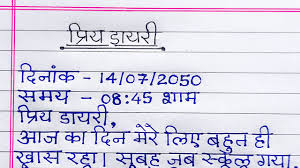 प्रिय डायरी
दिनांक - 14/07/2050
समय - 08:45 शाम
प्रिय डायरी,
आज का दिन मेरे लिए बहुत ही
खास रहा। सुबह जब स्कूल गया,